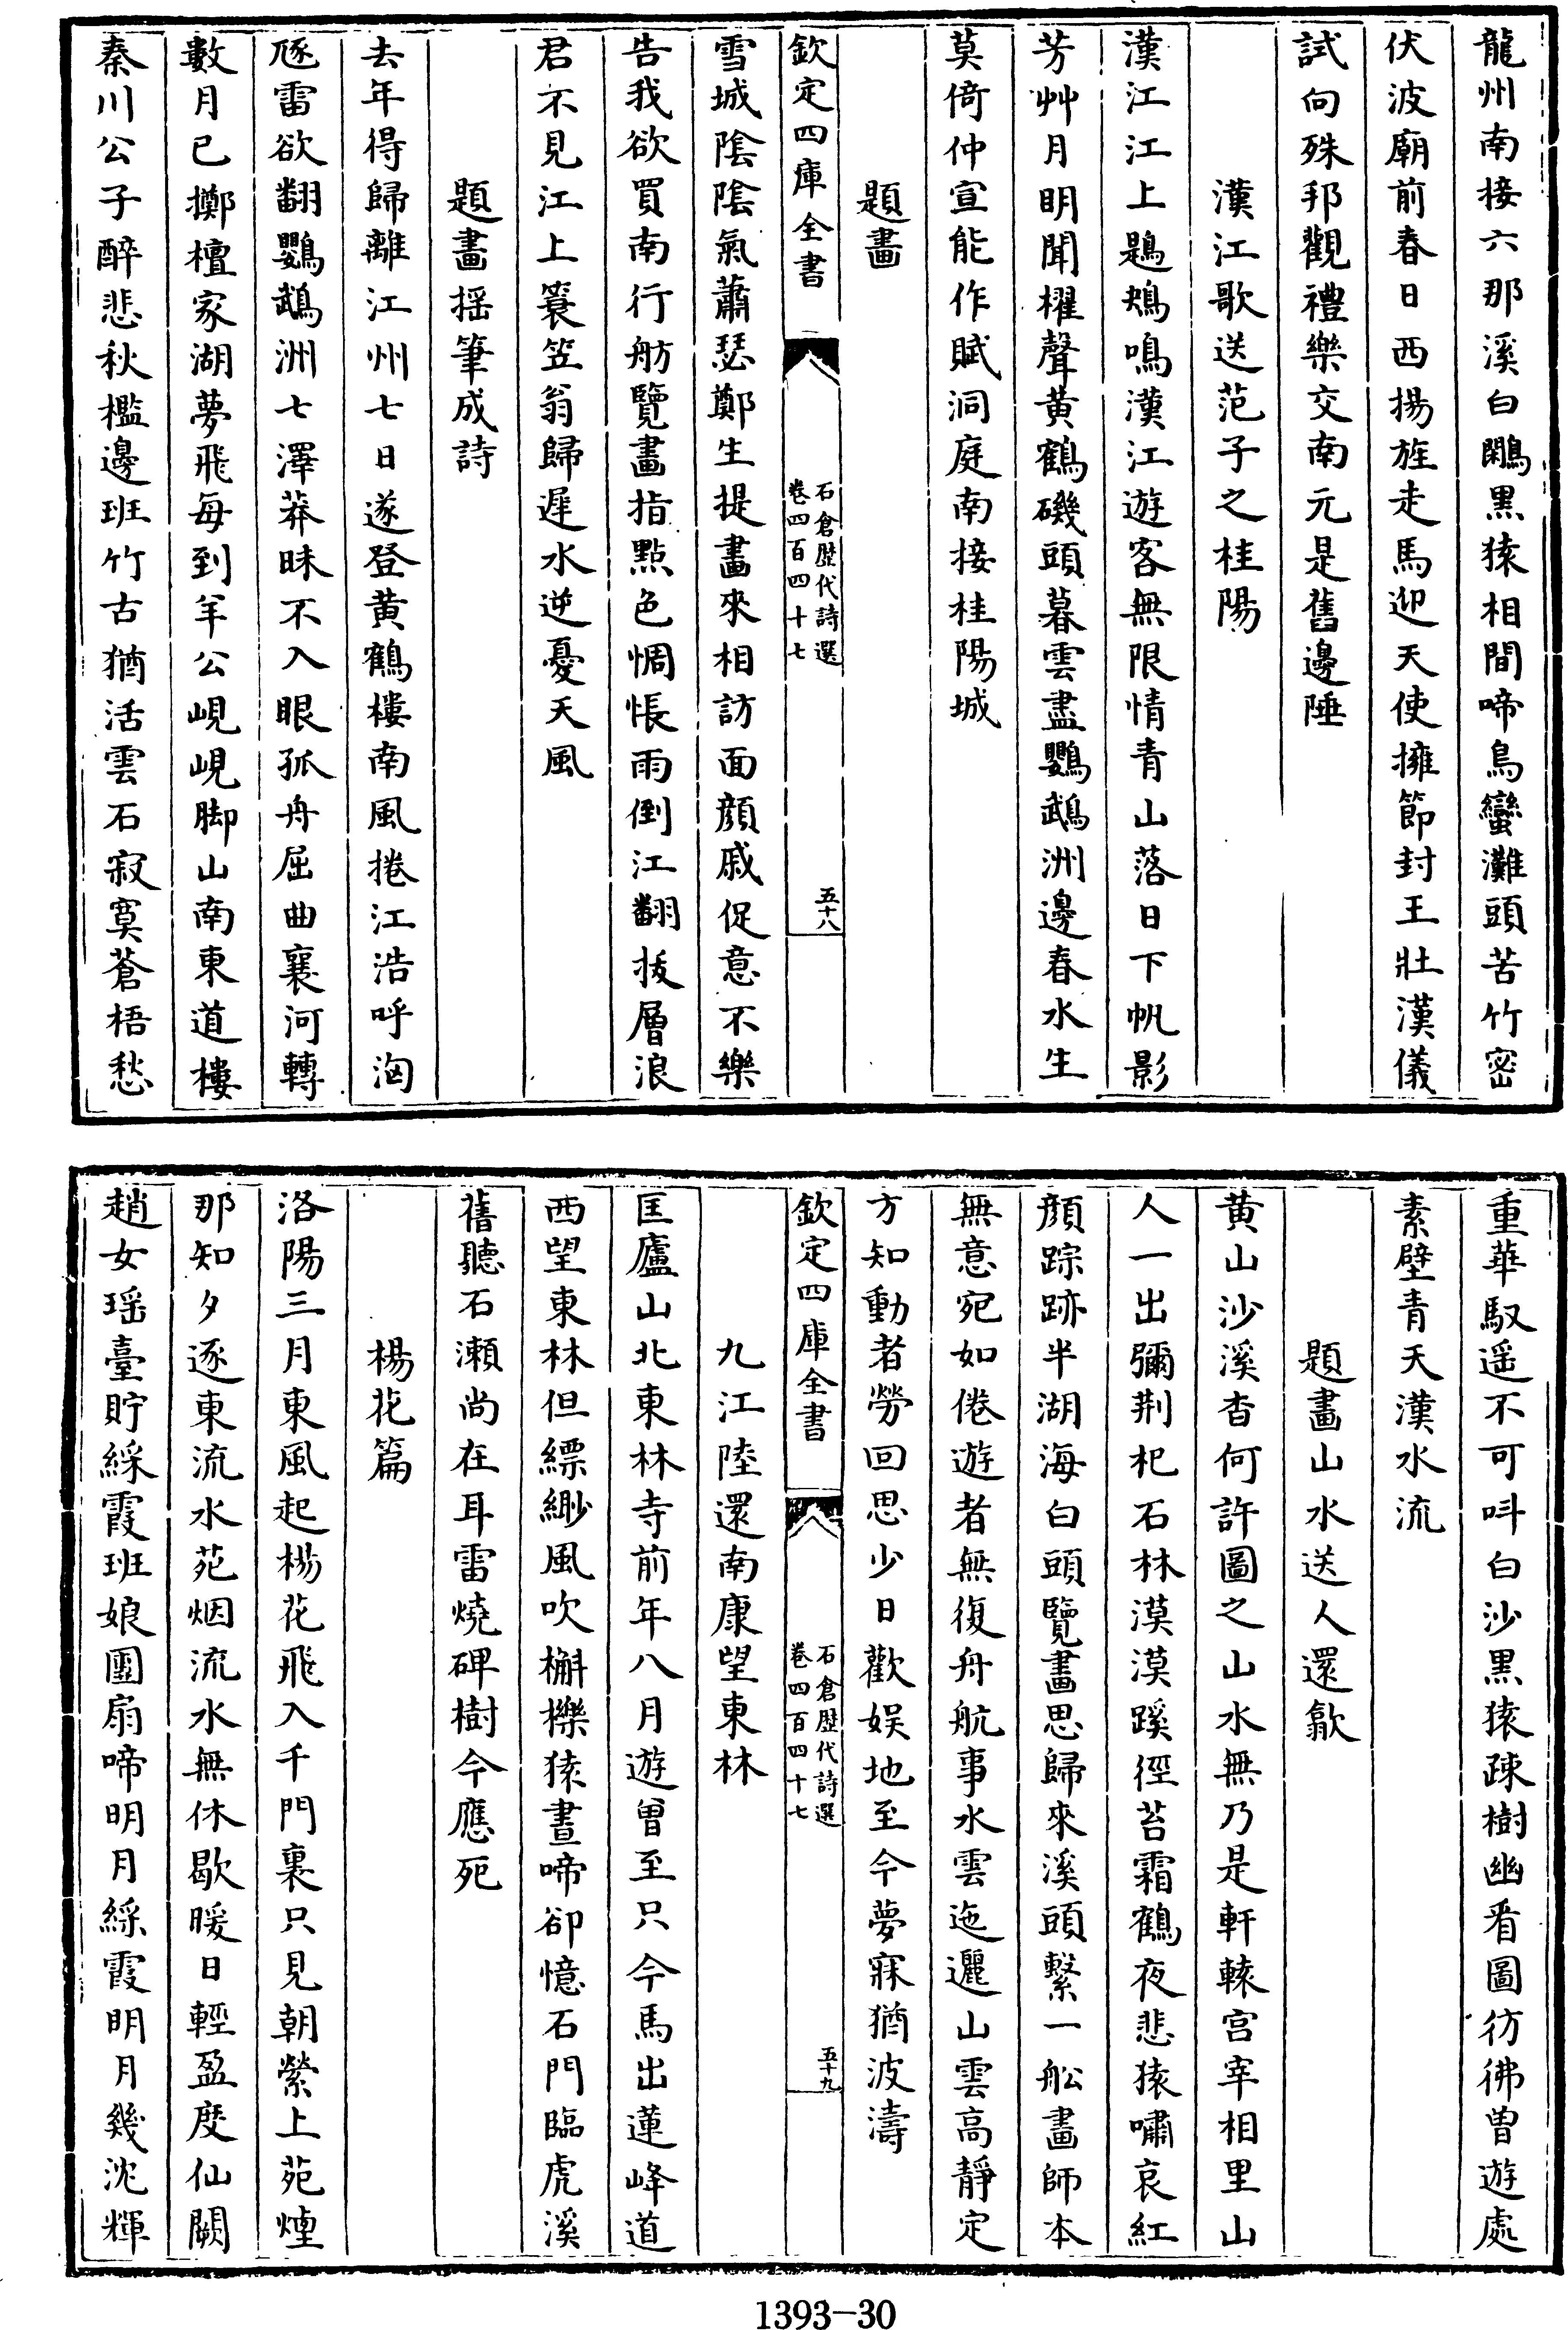 龍州南接六那溪白鷴黑猿相間啼鳥蠻灘頭苦竹密
伏波廟前春日西揚旌走馬迎天使擁節封王壯漢儀
試向殊邦觀禮樂交南元是舊邊陲
漢江歌送范子之桂陽
漢江江上鶗鴂鳴漢江遊客無限情青山落日下帆影
芳艸月明聞櫂聲黄鶴磯頭暮雲盡鸚鵡洲邊春水生
莫倚仲宣能作賦洞庭南接桂陽城
題畫
欽定四庫全書
石倉歴代詩選
卷四百四十七
五十八
雪城陰陰氣蕭瑟鄭生提畫來相訪面顔戚促意不樂
告我欲買南行舫覽畫指點色惆悵雨倒江翻拔層浪
君不見江上簑笠翁歸遲水逆憂天風
題畫揺筆成詩
去年得歸離江州七日遂登黄鶴樓南風捲江浩呼洶
豗雷欲翻鸚鵡洲七澤莽昧不入眼孤舟屈曲襄河轉
數月已擲檀家湖夢飛每到羊公峴峴脚山南東道樓
秦川公子醉悲秋檻邊班竹古猶活雲石寂寞蒼梧愁
重華馭遥不可呌白沙黒猿疎樹幽看圖彷彿曽遊處
素壁青天漢水流
題畫山水送人還歙
黄山沙溪杳何許圖之山水無乃是軒轅宫宰相里山
人一出彌荆杞石林漠漠蹊徑苔霜鶴夜悲猿嘯哀紅
顔踪跡半湖海白頭覽畫思歸來溪頭繫一舩畫師本
無意宛如倦遊者無復舟航事水雲迤邐山雲高靜定
方知動者勞回思少日歡娱地至今夢寐猶波濤
欽定四庫全書
石倉歴代詩選
卷四百四十七
五十九
九江陸還南康望東林
匡廬山北東林寺前年八月遊曽至只今馬出蓮峰道
西望東林但縹緲風吹槲櫟猿晝啼卻憶石門臨虎溪
舊聽石瀨尚在耳雷燒碑樹今應死
楊花篇
洛陽三月東風起楊花飛入千門裏只見朝縈上苑煙
那知夕逐東流水苑烟流水無休歇暖日輕盈度仙闕
趙女瑶臺貯綵霞班娘團扇啼明月綵霞明月幾沈輝
1393-30